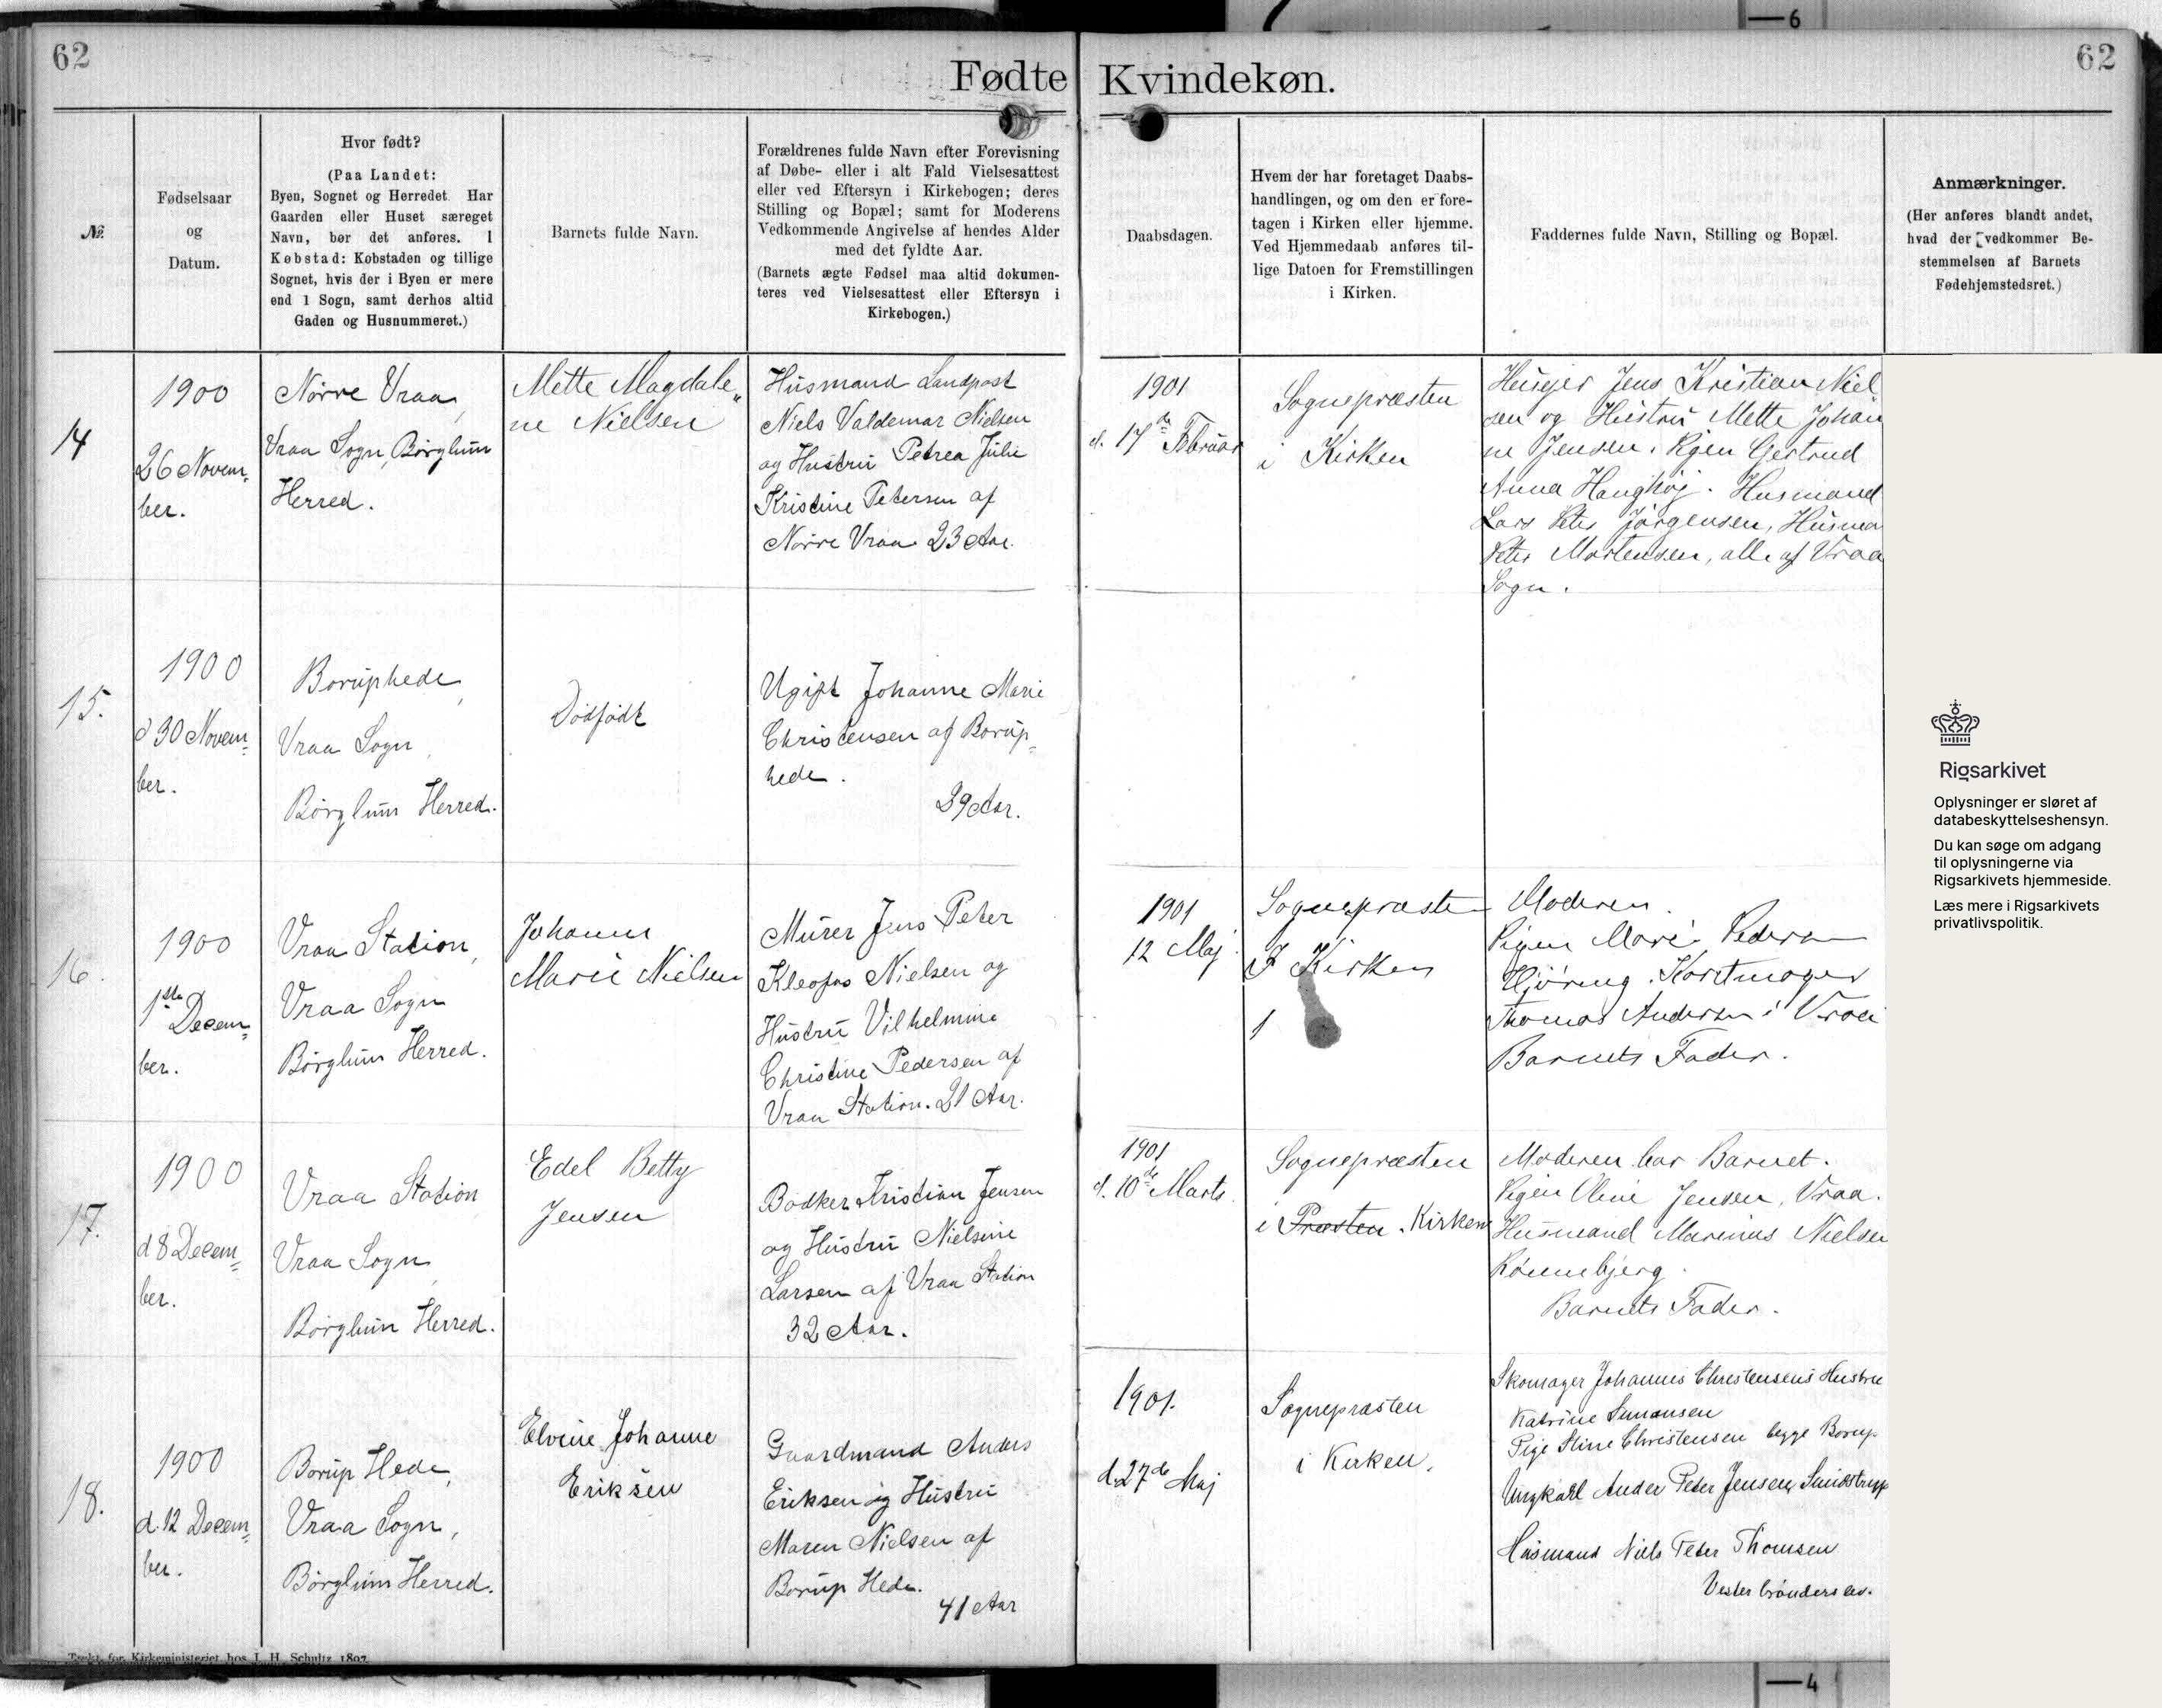 62
62
Fødte Kvindekøn.
№.
Fødselsaar
og
Datum.
Hvor født?
(Paa Landet:
Byen, Sognet og Herredet. Har
Gaarden eller Huset særeget
Navn, bør det anføres. I
Købstad: Købstaden og tillige
Sognet, hvis der i Byen er mere
end 1 Sogn, samt derhos altid
Gaden og Husnummeret.)
Barnets fulde Navn.
Forældrenes fulde Navn efter Forevisning
af Døbe- eller i alt Fald Vielsesattest
eller ved Eftersyn i Kirkebogen; deres
Stilling og Bopæl; samt for Moderens
Vedkommende Angivelse af hendes Alder
med det fyldte Aar.
(Barnets ægte Fødsel maa altid dokumen-
teres ved Vielsesattest eller Eftersyn i
Kirkebogen.)
Daabsdagen.
Hvem der har foretaget Daabs-
handlingen, og om den er fore-
tagen i Kirken eller hjemme.
Ved Hjemmedaab anføres til-
lige Datoen for Fremstillingen
i Kirken.
Faddernes fulde Navn, Stilling og Bopæl.
Anmærkninger.
(Her anføres blandt andet,
hvad der vedkommer Be-
stemmelsen af Barnets
Fødehjemstedsret.)
14
1900
26 Novem-
ber.
Nörre Vraa,
Vraa Sogn, Börglum
Herred.
Mette Magdale„
ne Nielsen
Husmand Landpost
Niels Valdemar Nielsen
og Hustru Petrea Julie
Kristine Petersen af
Nörre Vraa 23 Aar.
1901
d. 17de Februar
Sognepræsten
i Kirken
Husejer Jens Kristian Niel
sen og Hustru Mette Johan
ne Jensen. Pigen Gertrud
Anna Haughøj. Husmand
Lars Peter Jörgensen, Husma
Peter Mortensen, alle af Vraa
Sogn.
15.
1900
d 30 Novem=
ber.
Boruphede,
Vraa Sogn,
Börglum Herred.
Dödfödt
Ugift Johanne Marie
Christensen af Borup=
hede.
39 Aar.
16.
1900
1ste Decem=
ber.
Vraa Station,
Vraa Sogn
Börglum Herred.
Johanne
Marie Nielsen
Murer Jens Peter
Kleofas Nielsen og
Hustru Vilhelmine
Christine Pedersen af
Vraa Station. 21 Aar.
1901
12 Maj.
Sognepræsten
I Kirken
1
Moderen.
Pigen Marie Pedersen
Hjörring. Karetmager
Thomas Andersen i Vraa
Barnets Fader.
17.
1900
d 8 Decem=
ber.
Vraa Station
Vraa Sogn,
Börglum Herred.
Edel Betty
Jensen
Bödker Kristian Jensen
og Hustru Nielsine
Larsen af Vraa Station
32 Aar.
1901
d. 10de Marts.
Sognepræsten
i Præsten. Kirken
Moderen bar Barnet.
Pigen Oline Jensen, Vraa.
Husmand Marinus Nielsen
Rönnebjerg.
Barnets Fader.
18.
1900
d. 12 Decem=
ber.
Borup Hede,
Vraa Sogn,
Börglum Herred.
Elvine Johanne
Eriksen
Gaardmand Anders
Eriksen og Hustru
Maren Nielsen af
Borup Hede.
41 Aar
1901.
d. 27de Maj
Sognepræsten
i Kirken.
Skomager Johannes Christensens Hustru
Katrine Simonsen
Pige Stine Christensen begge Borup
Ungkarl Ander Peter Jensen, Smidstrup
Husmand Niels Peter Thomsen
Vester Brönderslev.
Trykt for Kirkeministeriet hos J. H. Schultz. 1897.
Rigsarkivet
Oplysninger er sløret af
databeskyttelseshensyn.
Du kan søge om adgang
til oplysningerne via
Rigsarkivets hjemmeside.
Læs mere i Rigsarkivets
privatlivspolitik.
6
4